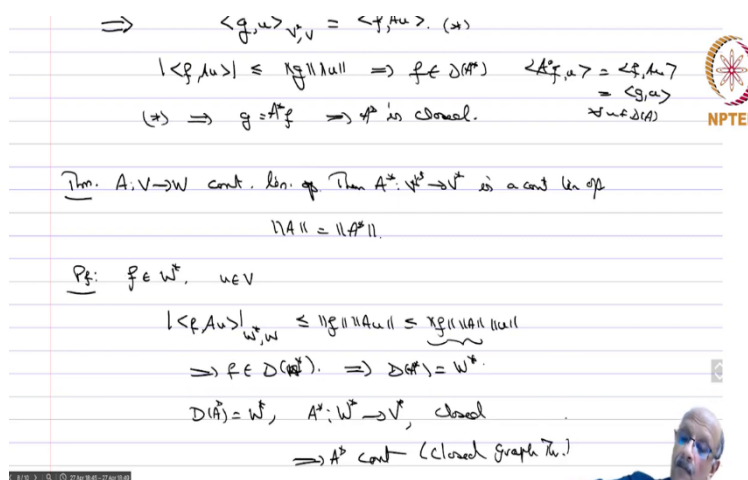 ⟹ <g,u>_{V*,V} = <f,Au>. (*)
|<f,Au>| ≤ ‖g‖‖u‖ ⟹ f ∈ D(A*) <A*f,u> = <f,Au>
= <g,u>
∀u∈D(A)
(*) ⟹ g = A*f ⟹ A* is closed.
NPTEL
Thm. A: V→W cont. lin. op. Then A*: W*→V* is a cont lin op
‖A‖ = ‖A*‖.
Pf: f ∈ W*, u∈V
|<f,Au>|_{W*,W} ≤ ‖f‖‖Au‖ ≤ ‖f‖‖A‖‖u‖
⟹ f ∈ D(A*). ⟹ D(A*) = W*.
D(A*) = W*, A*: W*→V*, closed
⟹ A* cont (closed graph Th.)
8/10 27 Apr 18:45 - 27 Apr 18:49